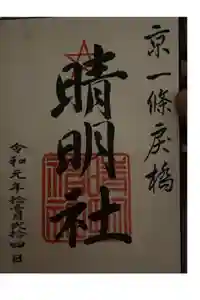 京一條戻橋
晴明社
令和元年拾壹月弐拾四日